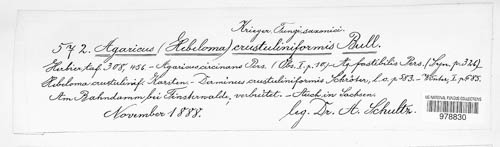 Krieger, Fungi saxonici.
572. Agaricus (Hebeloma) crustuliniformis Bull.
Herbier taf. 308, 456 – Agaricus circinans Pers. (Obs. I, p. 10) – Ag. fastibilis Pers. (Syn. p. 326).
Hebeloma crustulinif. Karsten. – Derminus crustuliniformis Schröter, l. c. p. 583. – Winter, I, p. 685.
Am Bahndamm bei Finsterwalde, verbreitet. – Auch in Sachsen.
November 1888. leg. Dr. A. Schultz.
US NATIONAL FUNGUS COLLECTIONS
978830